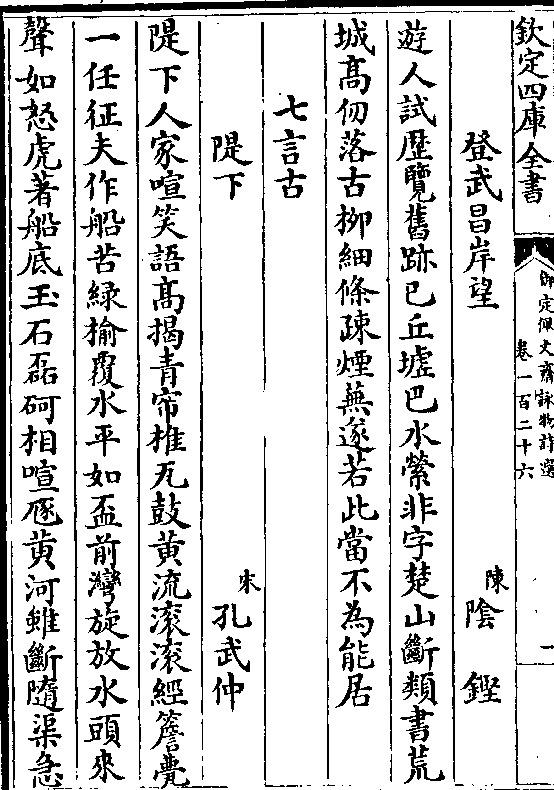 欽定四庫全書
御定佩文齋詠物詩選
卷一百二十六
一
登武昌岸望
陳陰鏗
遊人試歴覽舊跡已丘墟巴水縈非字楚山斷類書荒
城髙仞落古栁細條疎煙蕪遂若此當不為能居
七言古
隄下
宋孔武仲
隄下人家喧笑語髙揭青帘椎瓦鼓黄流滚滚經簷甍
一任征夫作船苦緑榆覆水平如盃前灣旋放水頭來
聲如怒虎著船底玉石磊砢相喧豗黄河雖斷隨渠急